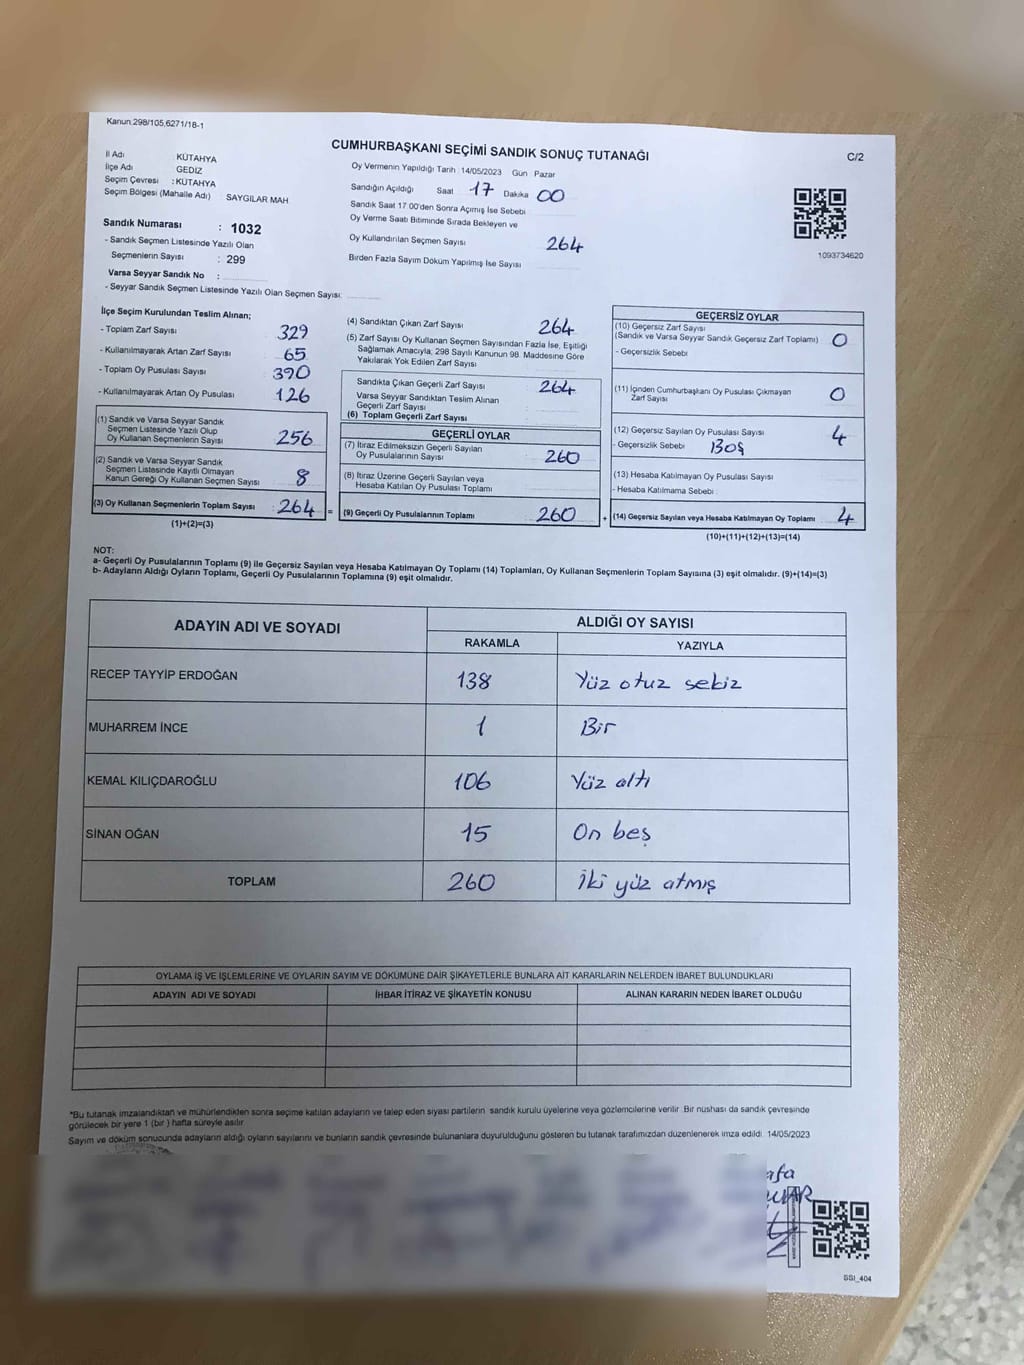 Kanun:298/105,6271/18-1
CUMHURBAŞKANI SEÇİMİ SANDIK SONUÇ TUTANAĞI
C/2
İl Adı : KÜTAHYA
İlçe Adı GEDİZ
Seçim Çevresi : KÜTAHYA
Seçim Bölgesi (Mahalle Adı) SAYGILAR MAH
Sandık Numarası : 1032
- Sandık Seçmen Listesinde Yazılı Olan
Seçmenlerin Sayısı : 299
Varsa Seyyar Sandık No :
- Seyyar Sandık Seçmen Listesinde Yazılı Olan Seçmen Sayısı:
Oy Vermenin Yapıldığı Tarih : 14/05/2023 Gün Pazar
Sandığın Açıldığı Saat 17 Dakika 00
Sandık Saat 17.00'den Sonra Açımış İse Sebebi
Oy Verme Saati Bitiminde Sırada Bekleyen ve
Oy Kullandırılan Seçmen Sayısı 264
Birden Fazla Sayım Döküm Yapılmış İse Sayısı
1093734620
İlçe Seçim Kurulundan Teslim Alınan;
- Toplam Zarf Sayısı 329
- Kullanılmayarak Artan Zarf Sayısı 65
- Toplam Oy Pusulası Sayısı 390
- Kullanılmayarak Artan Oy Pusulası 126
(1) Sandık ve Varsa Seyyar Sandık
Seçmen Listesinde Yazılı Olup
Oy Kullanan Seçmenlerin Sayısı 256
(2) Sandık ve Varsa Seyyar Sandık
Seçmen Listesinde Kayıtlı Olmayan
Kanun Gereği Oy Kullanan Seçmen Sayısı 8
(3) Oy Kullanan Seçmenlerin Toplam Sayısı 264 =
(1)+(2)=(3)
(4) Sandıktan Çıkan Zarf Sayısı 264
(5) Zarf Sayısı Oy Kullanan Seçmen Sayısından Fazla İse, Eşitliği
Sağlamak Amacıyla; 298 Sayılı Kanunun 98. Maddesine Göre
Yakılarak Yok Edilen Zarf Sayısı
Sandıkta Çıkan Geçerli Zarf Sayısı 264
Varsa Seyyar Sandıktan Teslim Alınan
Geçerli Zarf Sayısı
(6) Toplam Geçerli Zarf Sayısı
GEÇERLİ OYLAR
(7) İtiraz Edilmeksizin Geçerli Sayılan
Oy Pusulalarının Sayısı 260
(8) İtiraz Üzerine Geçerli Sayılan veya
Hesaba Katılan Oy Pusulası Toplamı
(9) Geçerli Oy Pusulalarının Toplamı 260 +
GEÇERSİZ OYLAR
(10) Geçersiz Zarf Sayısı
(Sandık ve Varsa Seyyar Sandık Geçersiz Zarf Toplamı) 0
- Geçersizlik Sebebi
(11) İçinden Cumhurbaşkanı Oy Pusulası Çıkmayan
Zarf Sayısı 0
(12) Geçersiz Sayılan Oy Pusulası Sayısı 4
- Geçersizlik Sebebi BOŞ
(13) Hesaba Katılmayan Oy Pusulası Sayısı
- Hesaba Katılmama Sebebi
(14) Geçersiz Sayılan veya Hesaba Katılmayan Oy Toplamı 4
(10)+(11)+(12)+(13)=(14)
NOT:
a- Geçerli Oy Pusulalarının Toplamı (9) ile Geçersiz Sayılan veya Hesaba Katılmayan Oy Toplamı (14) Toplamları, Oy Kullanan Seçmenlerin Toplam Sayısına (3) eşit olmalıdır. (9)+(14)=(3)
b- Adayların Aldığı Oyların Toplamı, Geçerli Oy Pusulalarının Toplamına (9) eşit olmalıdır.
ADAYIN ADI VE SOYADI
ALDIĞI OY SAYISI
RAKAMLA YAZIYLA
RECEP TAYYİP ERDOĞAN 138 Yüz otuz sekiz
MUHARREM İNCE 1 Bir
KEMAL KILIÇDAROĞLU 106 Yüz altı
SİNAN OĞAN 15 On beş
TOPLAM 260 İki yüz atmış
OYLAMA İŞ VE İŞLEMLERİNE VE OYLARIN SAYIM VE DÖKÜMÜNE DAİR ŞİKAYETLERLE BUNLARA AİT KARARLARIN NELERDEN İBARET BULUNDUKLARI
ADAYIN ADI VE SOYADI İHBAR İTİRAZ VE ŞİKAYETİN KONUSU ALINAN KARARIN NEDEN İBARET OLDUĞU
*Bu tutanak imzalandıktan ve mühürlendikten sonra seçime katılan adayların ve talep eden siyasi partilerin sandık kurulu üyelerine veya gözlemcilerine verilir. Bir nüshası da sandık çevresinde
görülecek bir yere 1 (bir ) hafta süreyle asılır.
Sayım ve döküm sonucunda adayların aldığı oyların sayılarını ve bunların sandık çevresinde bulunanlara duyurulduğunu gösteren bu tutanak tarafımızdan düzenlenerek imza edildi. 14/05/2023
SSI_404